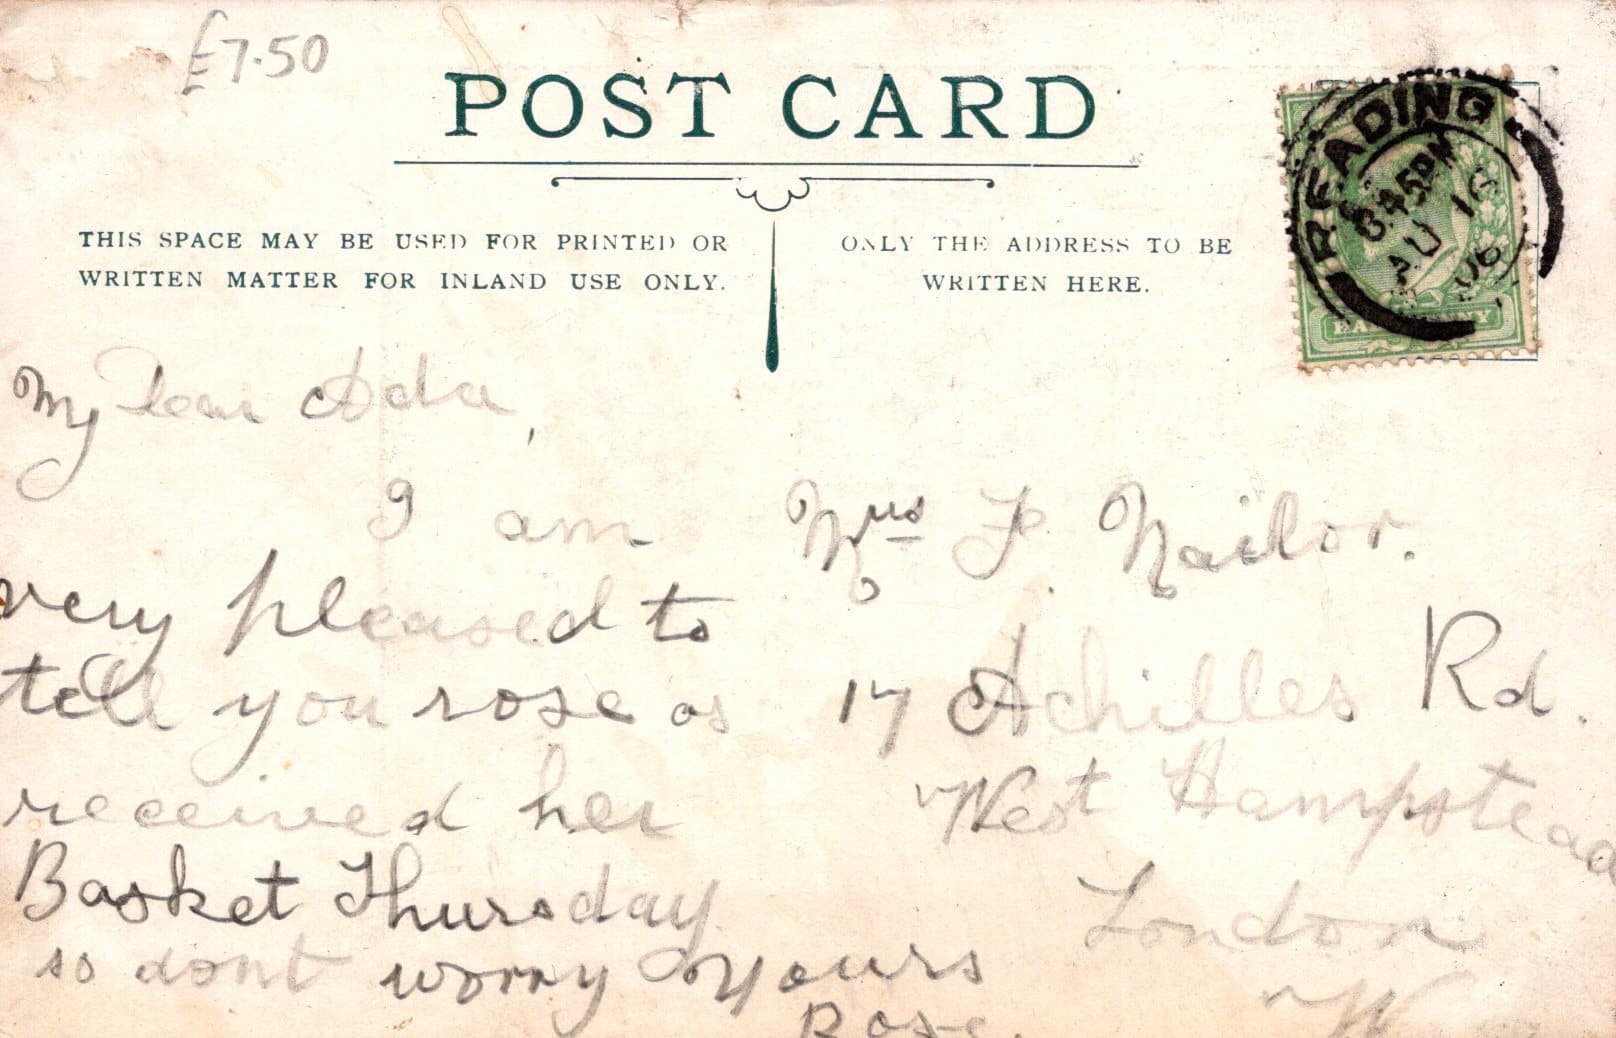 £7.50
POST CARD
THIS SPACE MAY BE USED FOR PRINTED OR
WRITTEN MATTER FOR INLAND USE ONLY.
ONLY THE ADDRESS TO BE
WRITTEN HERE.
READING
8.45PM
AU 16
06
HALFPENNY
My Dear Ada,
I am
very pleased to
tell you rose as
received her
Basket Thursday
so dont worry yours
Rose.
Mrs F. Nailor.
17 Achilles Rd.
West Hampstead
London
W